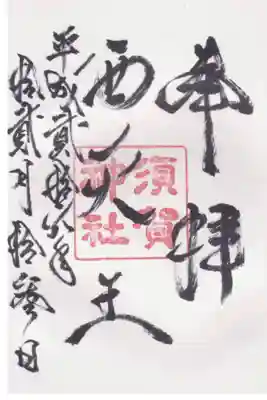 奉拝
西天王
須賀神社
平成貳拾六年
拾貳月拾參日